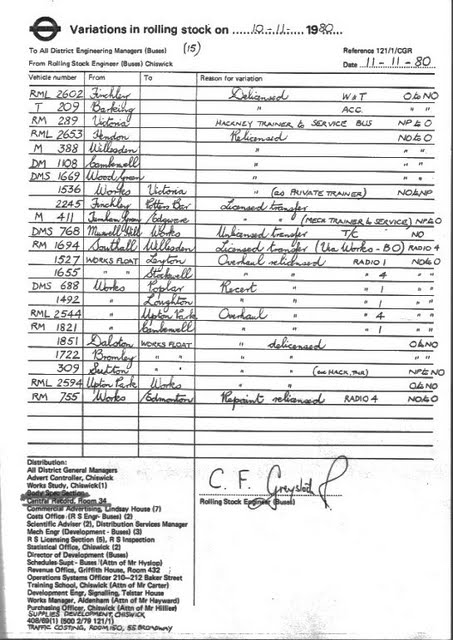 Variations in rolling stock on 10-11- 1980
To All District Engineering Managers (Buses) (15) Reference 121/1/CGR
From Rolling Stock Engineer (Buses) Chiswick Date 11-11-80
Vehicle number From To Reason for variation
RML 2602 Finchley Delicensed W&T O to NO
T 209 Barking " ACC. " "
RM 289 Victoria HACKNEY TRAINER to SERVICE BUS NP to O
RML 2653 Hendon Relicensed NO to O
M 388 Willesden " " "
DM 1108 Camberwell " " "
DMS 1669 Wood Green " " "
1536 Works Victoria " (as PRIVATE TRAINER) NO to NP
2245 Finchley Potters Bar Licensed transfer
M 411 Turnham Green Edgware " " (MECH TRAINER to SERVICE) NP to O
DMS 768 Muswell Hill Works Unlicensed transfer T/C NO
RM 1694 Southall Willesden Licensed transfer (Via Works - BO) RADIO 4
1527 WORKS FLOAT Leyton Overhaul relicensed RADIO 1 NO to O
1655 " " Stockwell " " " 4 " "
DMS 688 Works Poplar Recert " " 1 " "
1492 " Loughton " " " 1 " "
RML 2544 " Upton Park Overhaul " " 4 " "
RM 1821 " Camberwell " " " 1 " "
1851 Dalston WORKS FLOAT " delicensed O to NO
1722 Bromley " " " " " "
309 Sutton " " " " (ex HACK. TNR) NP to NO
RML 2594 Upton Park Works " " O to NO
RM 755 Works Edmonton Repaint relicensed RADIO 4 NO to O
Distribution:
All District General Managers
Advert Controller, Chiswick
Works Study, Chiswick (1)
Body Spec Section
Central Record, Room 34
Commercial Advertising, Lindsay House (7)
Costs Office (R S Engr- Buses) (2)
Scientific Adviser (2), Distribution Services Manager
Mech Engr (Development - Buses) (3)
R S Licensing Section (5), R S Inspection
Statistical Office, Chiswick (2)
Director of Development (Buses)
Schedules Supt - Buses (Attn of Mr Hyslop)
Revenue Office, Griffith House, Room 432
Operations Systems Officer 210-212 Baker Street
Training School, Chiswick (Attn of Mr Carter)
Development Engr, Signalling, Telstar House
Works Manager, Aldenham (Attn of Mr Hayward)
Purchasing Officer, Chiswick (Attn of Mr Hillier)
SUPPLIES DEVELOPMENT, CHISWICK
408/69(1) (500 2/79 121/1)
TRAFFIC COSTING, ROOM 150, 55 BROADWAY
C. F.
Rolling Stock Engineer (Buses)